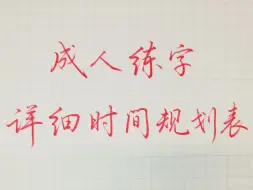 成人练字
详细时间规划表